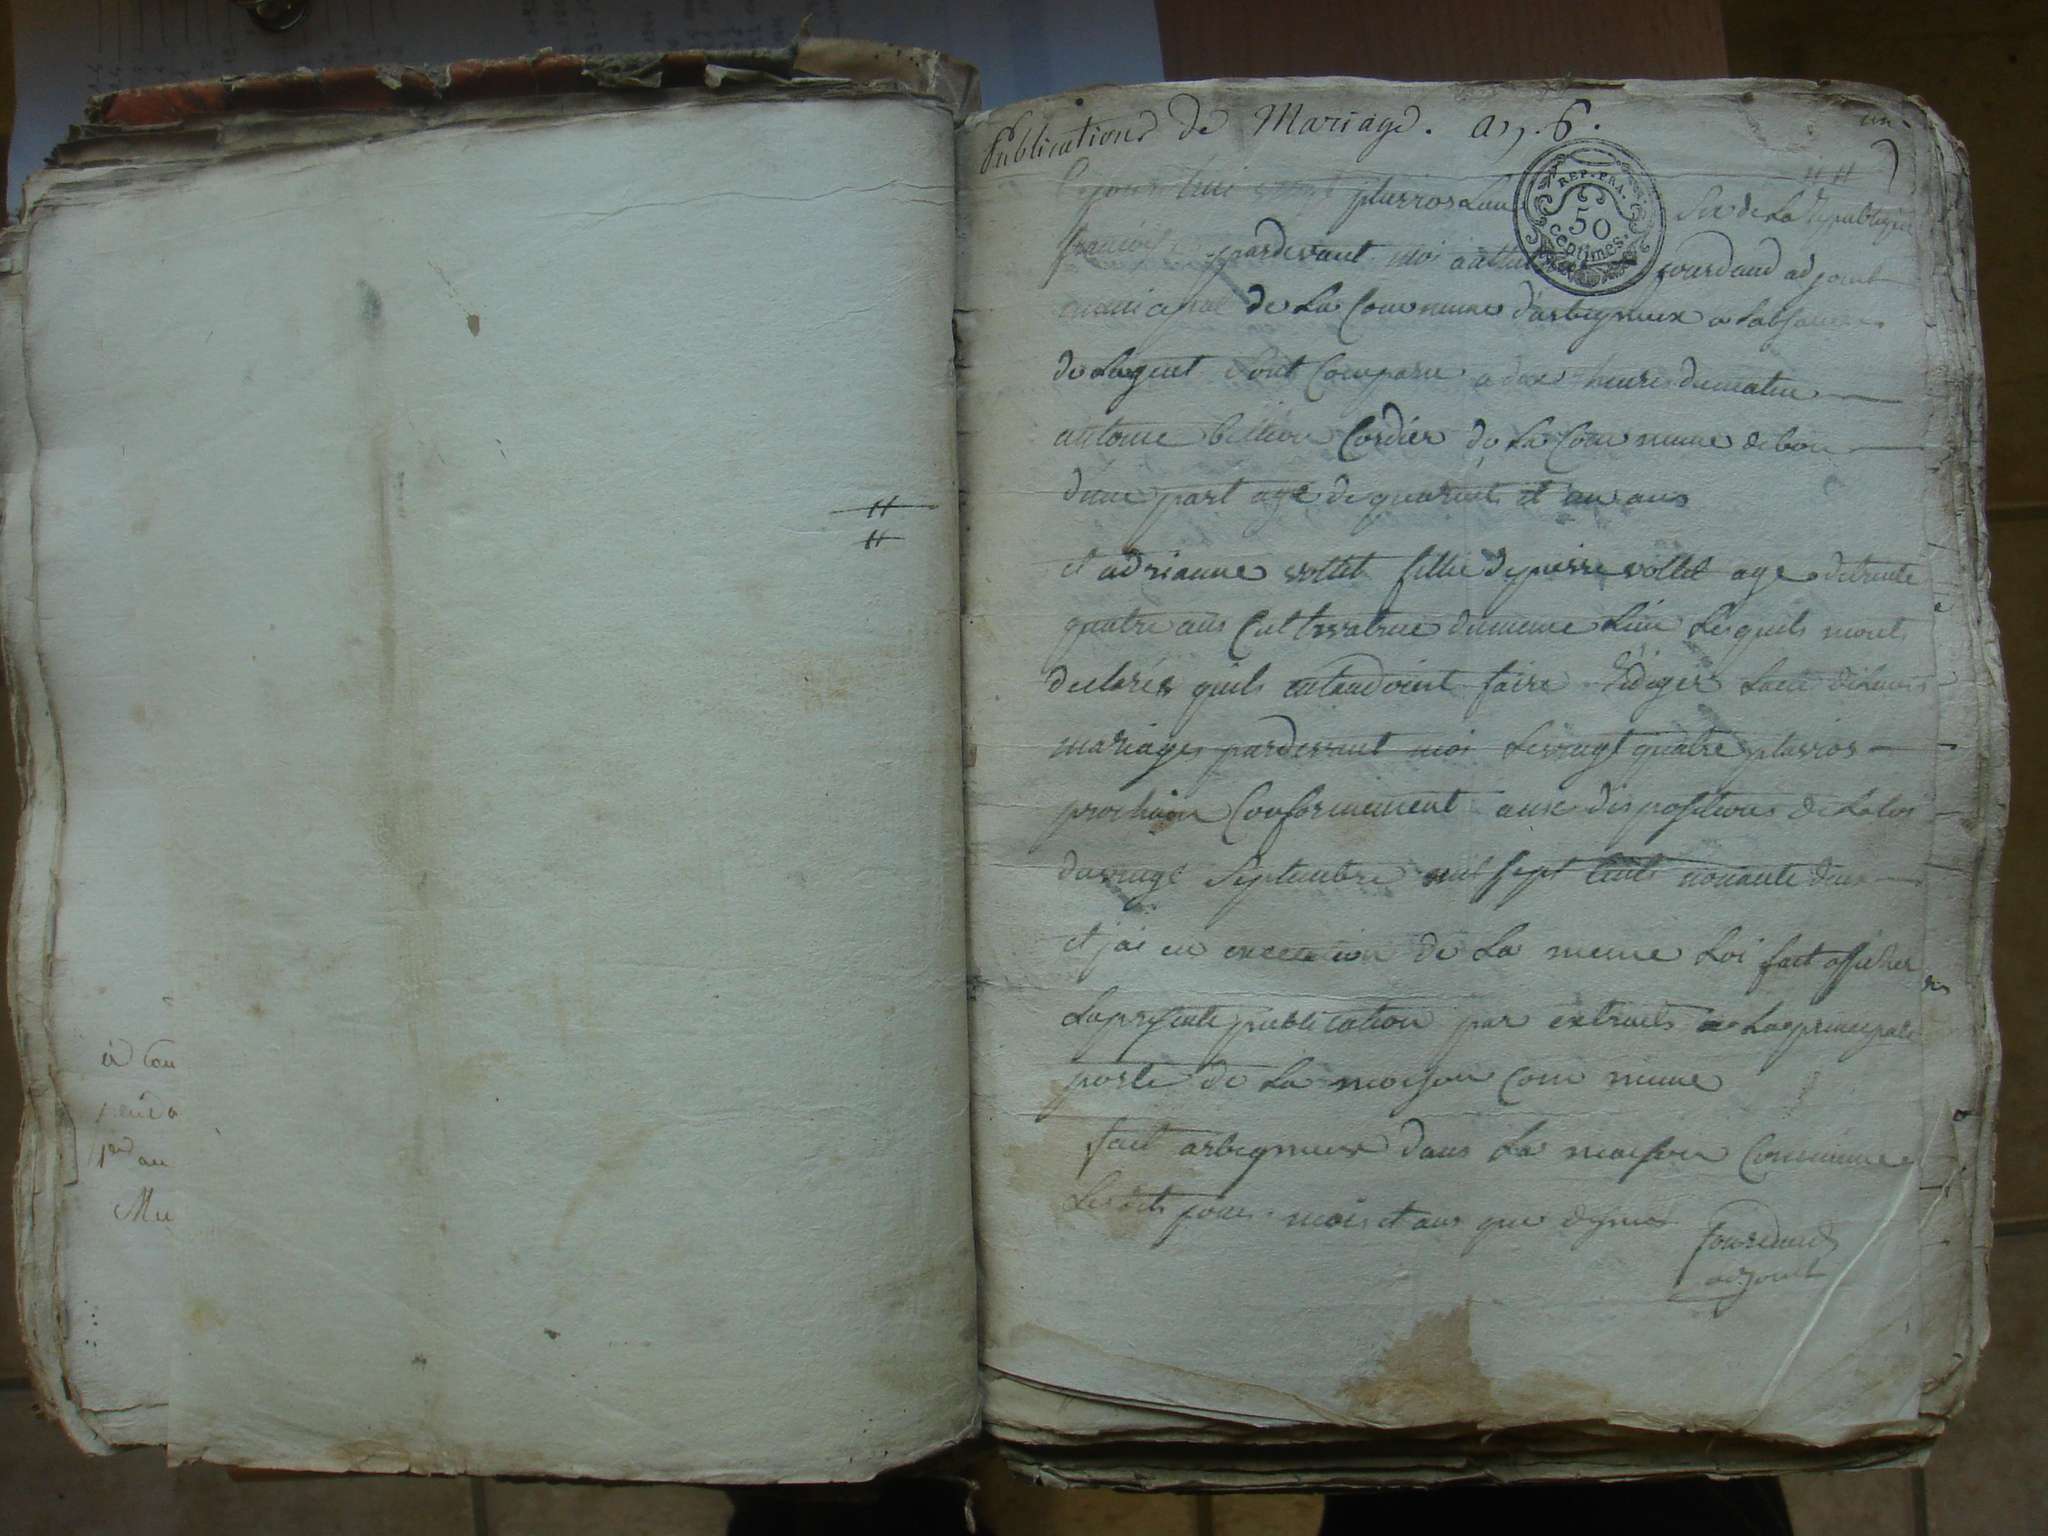 à Cou
pend
1er au
Mu
Publications de Mariage. an. 6.
un.
REP. FRA.
50
centimes.
jourdhui vingt pluvios Lan Six de La Republique
pardevant moi jourdand adjoint
municipal de La Commune d'arbignieux a Labsance
de Lagent Sont Comparu a dix heures dumatin
antoine billion Cordier de La Commune de bou
dune part age de quarente et un ans
et adrianne vollet fillie de pierre vollet age detrente
quatre ans Cultivatrice dumeme Lieu Lesquels mont
declarés quils entandoint faire Rediger Lacte de Leurs
mariages pardevant moi Levingt quatre pluvios
prochain Conformement aux dispositions de Laloi
duvingt Septembre mil Sept Cents nonante deux
et jai en execution de La meme Loi fait afficher
Lapresente publication par extraits a La principale
porte de La maison Commune
fait arbignieux dans La maison Commune
Lesdits jours mois et ans que desus
Jourdand
adjoint